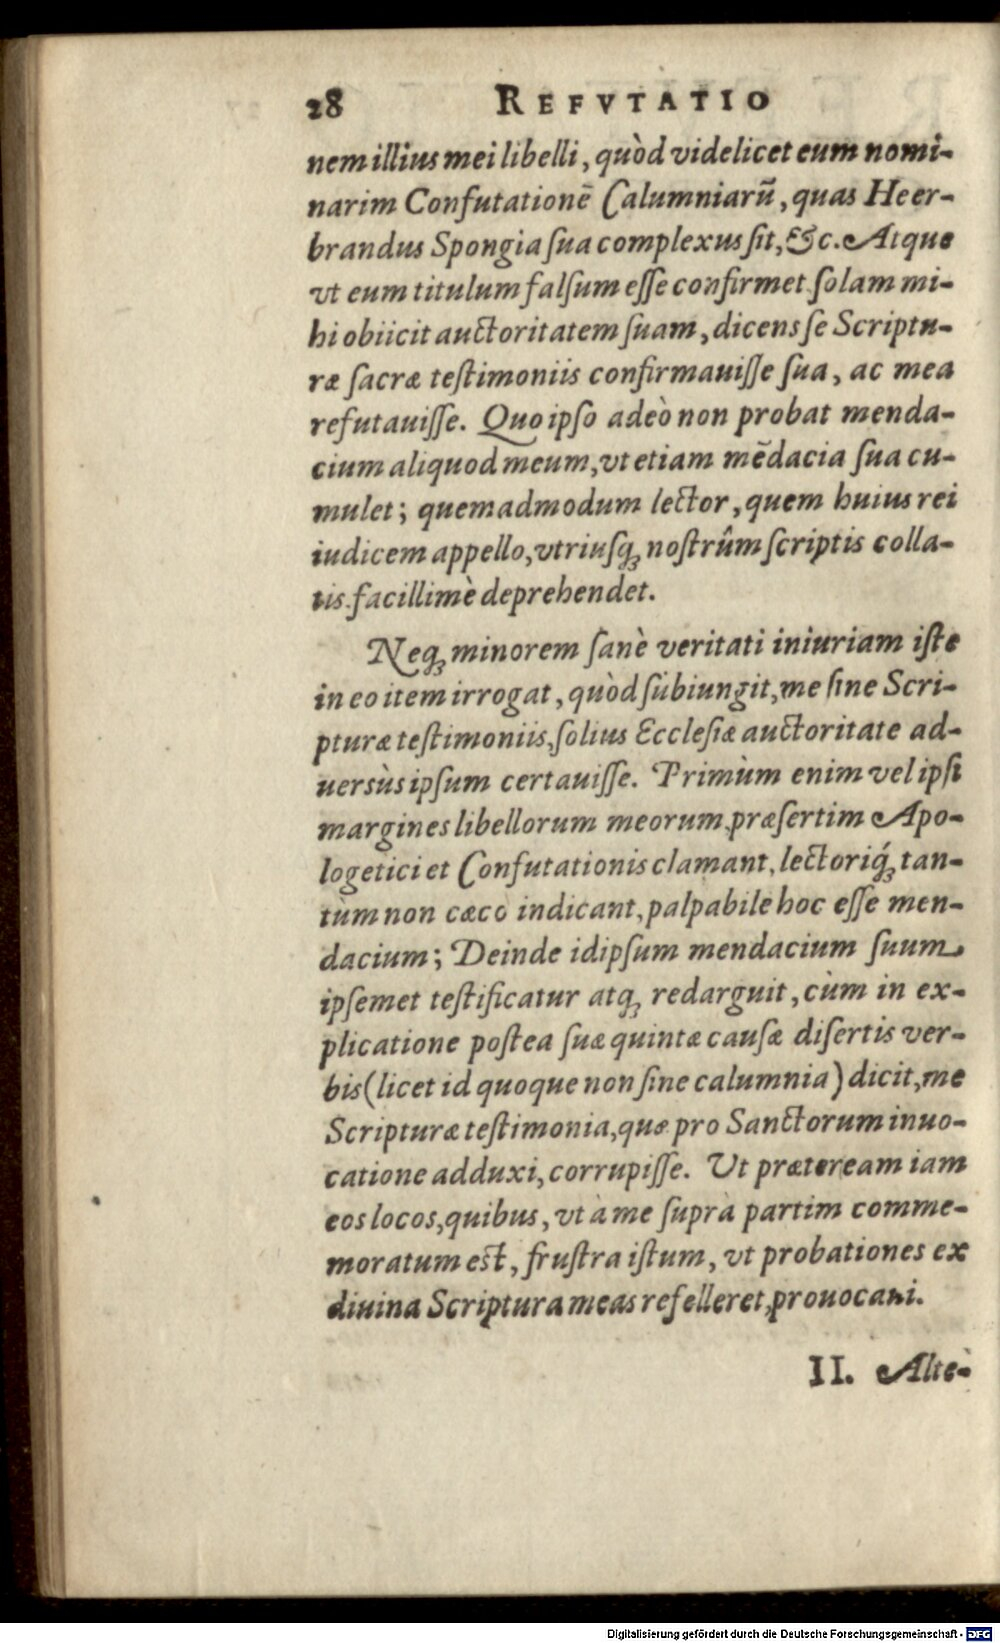 28 REFVTATIO
nem illius mei libelli, quòd videlicet eum nomi-
narim Confutationē Calumniarū, quas Heer-
brandus Spongia sua complexus sit, &c. Atque
vt eum titulum falsum esse confirmet, solam mi-
hi obiicit auctoritatem suam, dicens se Scriptu-
ræ sacræ testimoniis confirmauisse sua, ac mea
refutauisse. Quo ipso adeò non probat menda-
cium aliquod meum, vt etiam mēdacia sua cu-
mulet; quemadmodum lector, quem huius rei
iudicem appello, vtriusq́; nostrûm scriptis colla-
tis facillimè deprehendet.
Neq; minorem sanè veritati iniuriam iste
in eo item irrogat, quòd subiungit, me sine Scri-
pturæ testimoniis, solius Ecclesiæ auctoritate ad-
uersùs ipsum certauisse. Primùm enim vel ipsi
margines libellorum meorum, præsertim Apo-
logetici et Confutationis clamant, lectoriq́; tan-
tùm non cæco indicant, palpabile hoc esse men-
dacium; Deinde idipsum mendacium suum
ipsemet testificatur atq; redarguit, cùm in ex-
plicatione postea suæ quintæ causæ disertis ver-
bis (licet id quoque non sine calumnia) dicit, me
Scripturæ testimonia, quæ pro Sanctorum inuo-
catione adduxi, corrupisse. Ut præteream iam
eos locos, quibus, vt à me suprà partim comme-
moratum est, frustra istum, vt probationes ex
diuina Scriptura meas refelleret, prouocaui.
II. Alte-
Digitalisierung gefördert durch die Deutsche Forschungsgemeinschaft - DFG